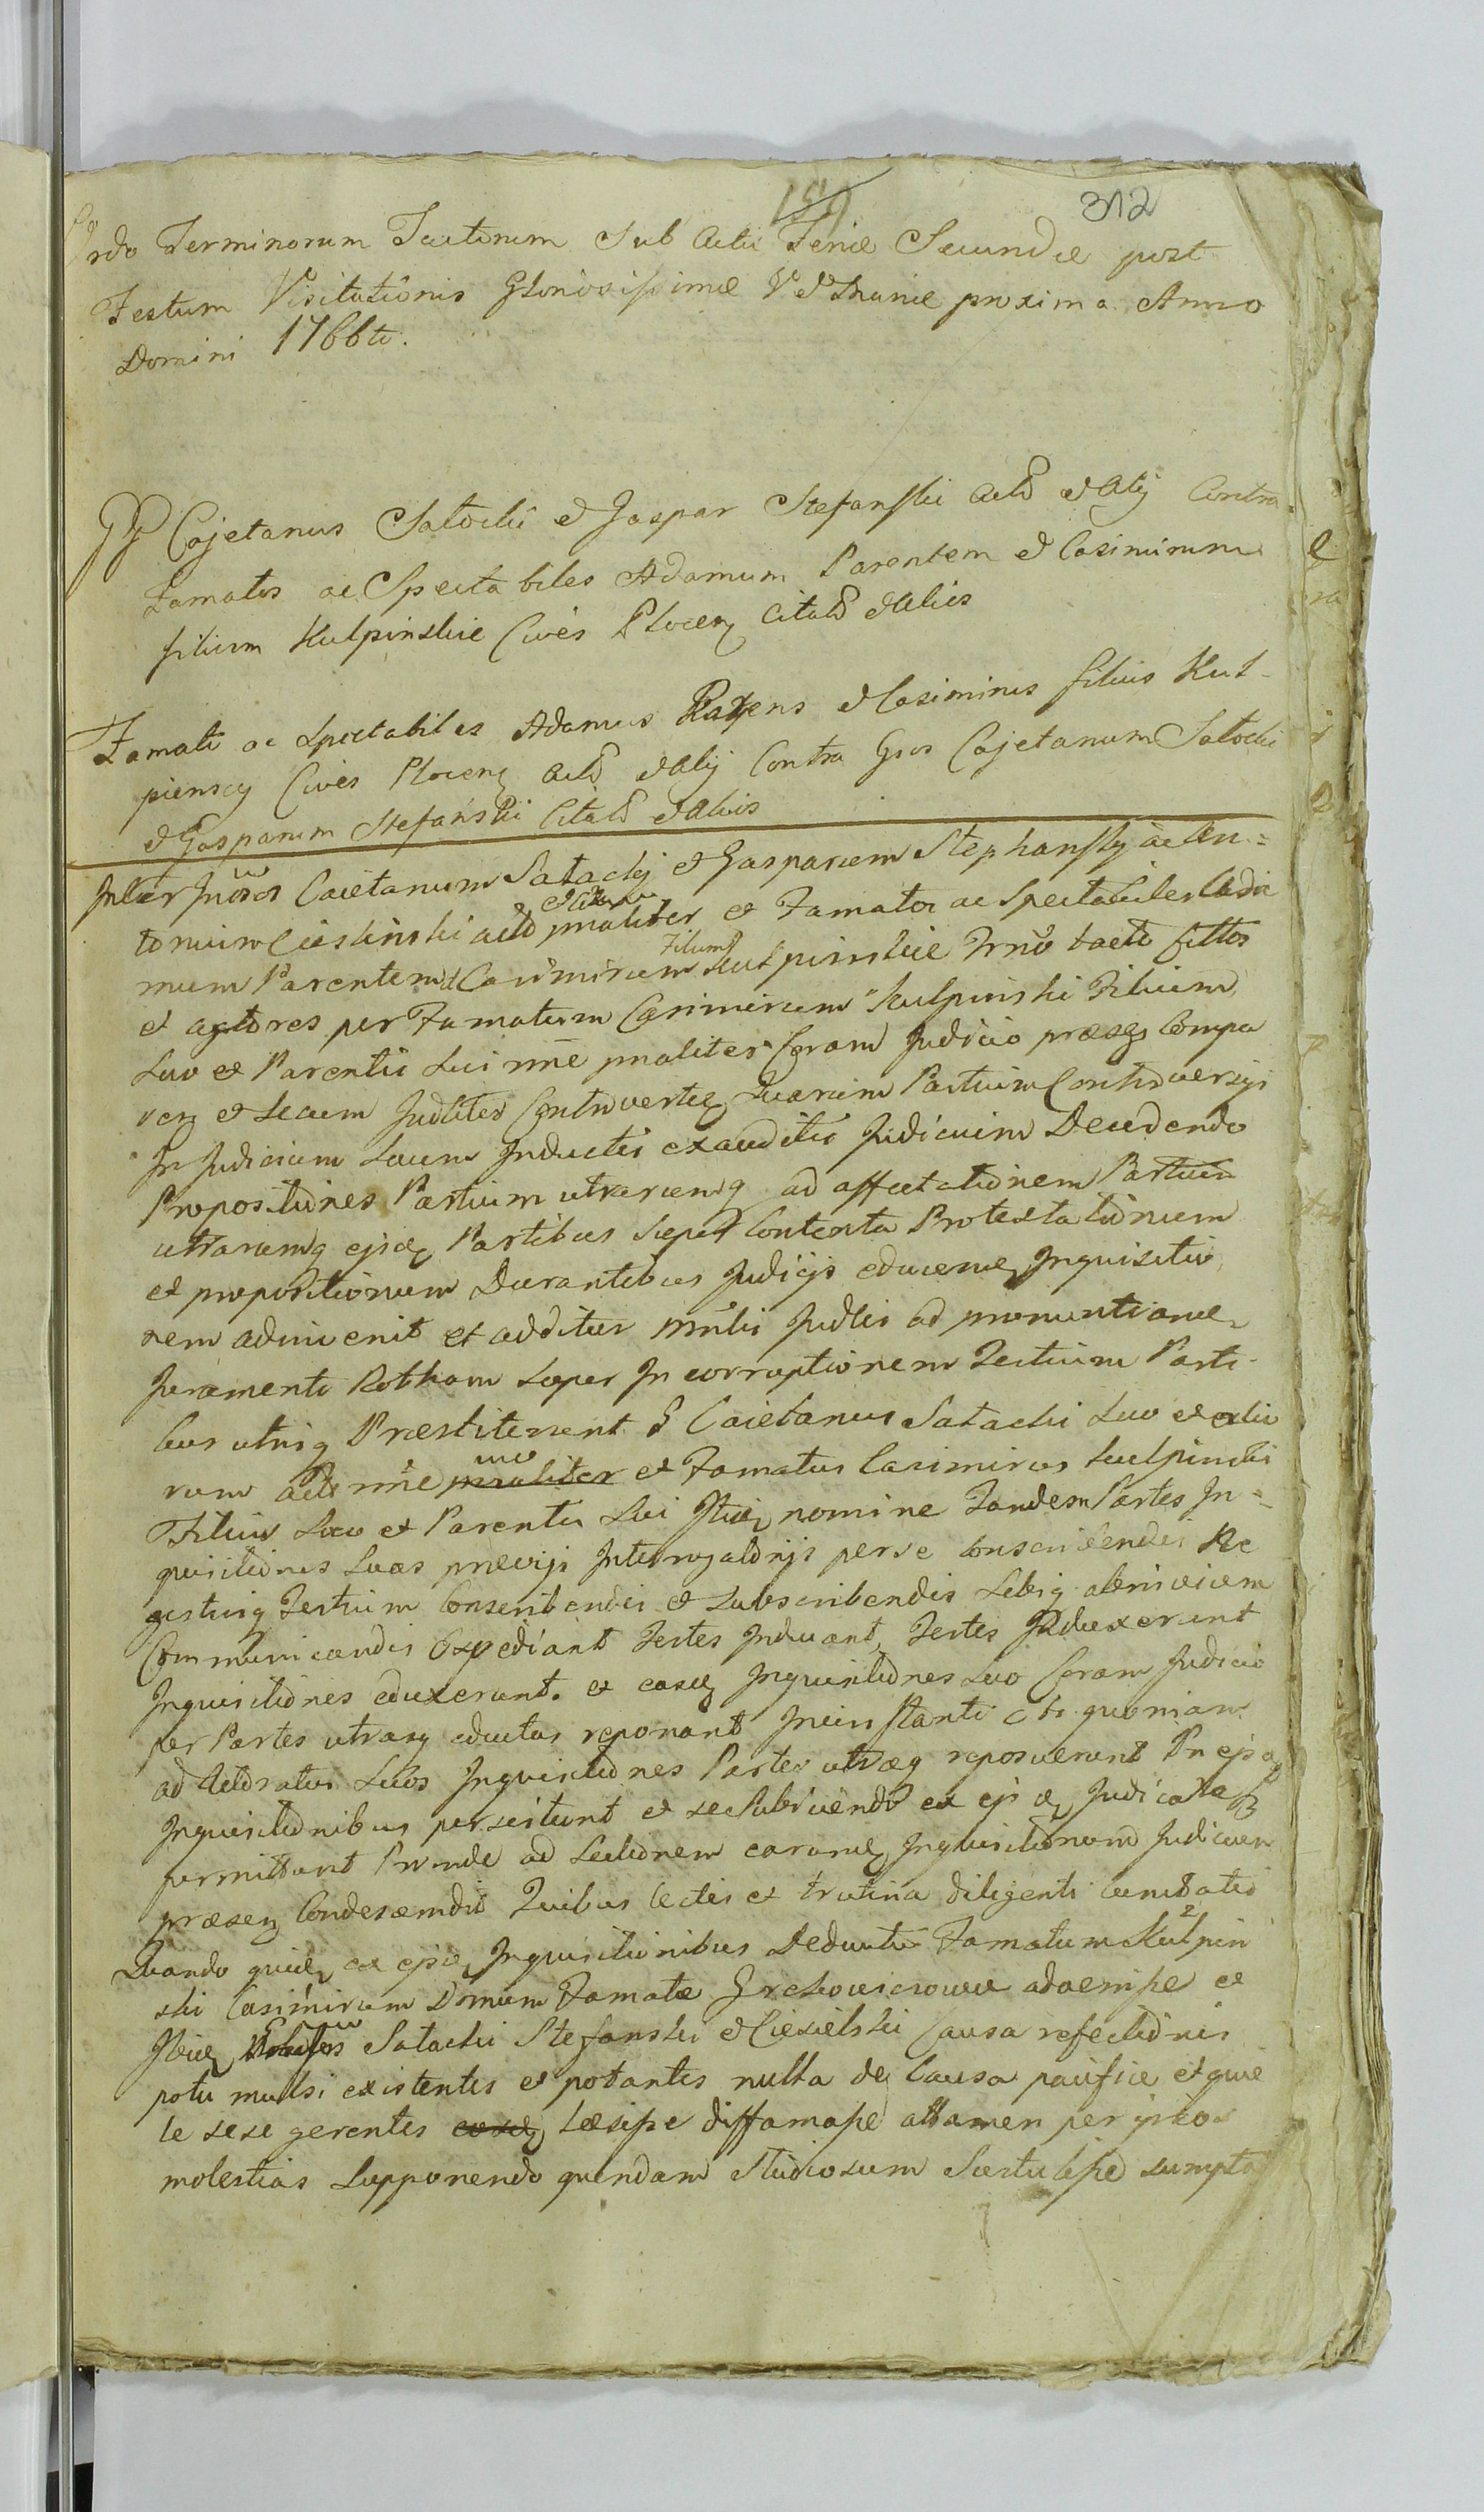 312
Ordo Terminorum Tactorum Sub Actu Feriæ Secundæ post
Festum Visitationis Gloriosissimæ V Mariæ proxima Anno
Domini 1766to.
GG Cajetanus Satocki et Gaspar Stefanski Act et Alij Contra
Famatos ac Spectabiles Adamum Parentem et Casimirum
filium Kulpinskie Cives Plocen Citat et Alios
Famati ac Spectabiles Adamus Parens et Casimirus filius Kul-
pienscy Cives Plocen Act et Alij Contra Gsos Cajetanum Satocki
et Gasparum Stefański Citat et Alios
Inter Caietanum Satacky et Gasparum Stephansky ac An=
tonium Cieslinski act pnaliter et Famatos ac Spectabiles Ada
mum Parentem et Casimirum Filium Kulpinskie
et actores per Famatum Casimirum Kulpinski Filium
suo et Parentis sui nne pnaliter Coram Judicio præsen Compa
ren et secum Judliter Controverten Quarum Partium Controversijs
In Judicium suum Inductis exauditis Judicium Decidendo
Propositiones Partium utrarumq ad affectationem Partium
utrarumq ejsdem Partibus super Contenta Protestationum
et propositionum Durantibus Judicijs educendam Inquisitio
nem adinvenit et additur Judlis ad pronuntiandam
Juramenti Rotham super Incorruptionem Testium Parti
bus utrisq Præstiterunt G Caietanus Satacki suo et alio
rum act nne pnaliter et Famatus Casimirus Kulpinski
Filius suo et Parentis sui nomine Tandem Partes In=
quisitiones suas prævijs Interrogatorijs per se conscribendis Re
gestrisq Testium Conscribendis et subscribendis sibiq abinvicem
Communicandis Expediant Testes Inducant, Testes Induxerunt
Inquisitiones eduxerunt. et easdem Inquisitiones suo Coram Judicio
per Partes utrasq eductas reponant quoniam
ad suos Inquisitiones Partes utræq reposuerunt In ejsdem
Inquisitionibus persistunt et se ex ejsdem Judicare
permittunt Proinde ad Lectionem earundem Inquisitionum Judicium
præsen Condescendit Quibus lectis et trutina diligenti
Quando quidem ex ejsdem Inquisitionibus Deducitur Famatum Kulpin
ski Casimirum Domum Famatæ advenisse et
Ibidem Satacki Stefanski et Ciesielski Causa refectionis
potu mulsi existentes et potantes nulla de Causa pacifice et quie
te sese gerentes læsisse diffamasse attamen per ipsos
molestias supponendo quendam studiosum sumpto